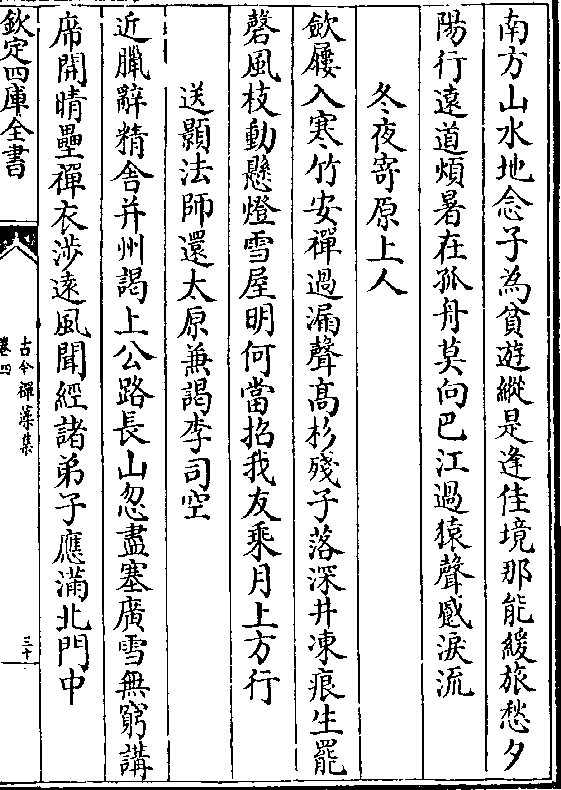 南方山水地念子為貧遊縱是逢佳境那能緩旅愁夕
陽行遠道煩暑在孤舟莫向巴江過猿聲感淚流
冬夜寄原上人
斂屨入寒竹安禪過漏聲高杉殘子落深井凍痕生罷
磬風枝動懸燈雪屋明何當招我友乘月上方行
送顥法師還太原兼謁李司空
近臘辭精舍并州謁上公路長山忽盡塞廣雪無窮講
席開晴壘禪衣涉遠風聞經諸弟子應滿北門中
欽定四庫全書
古今禪藻集
卷四
三十